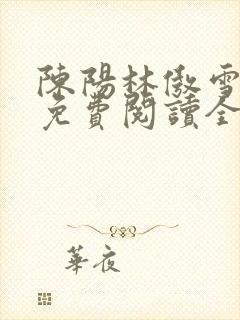 陳陽林傲雪
免費閱讀全
華夜